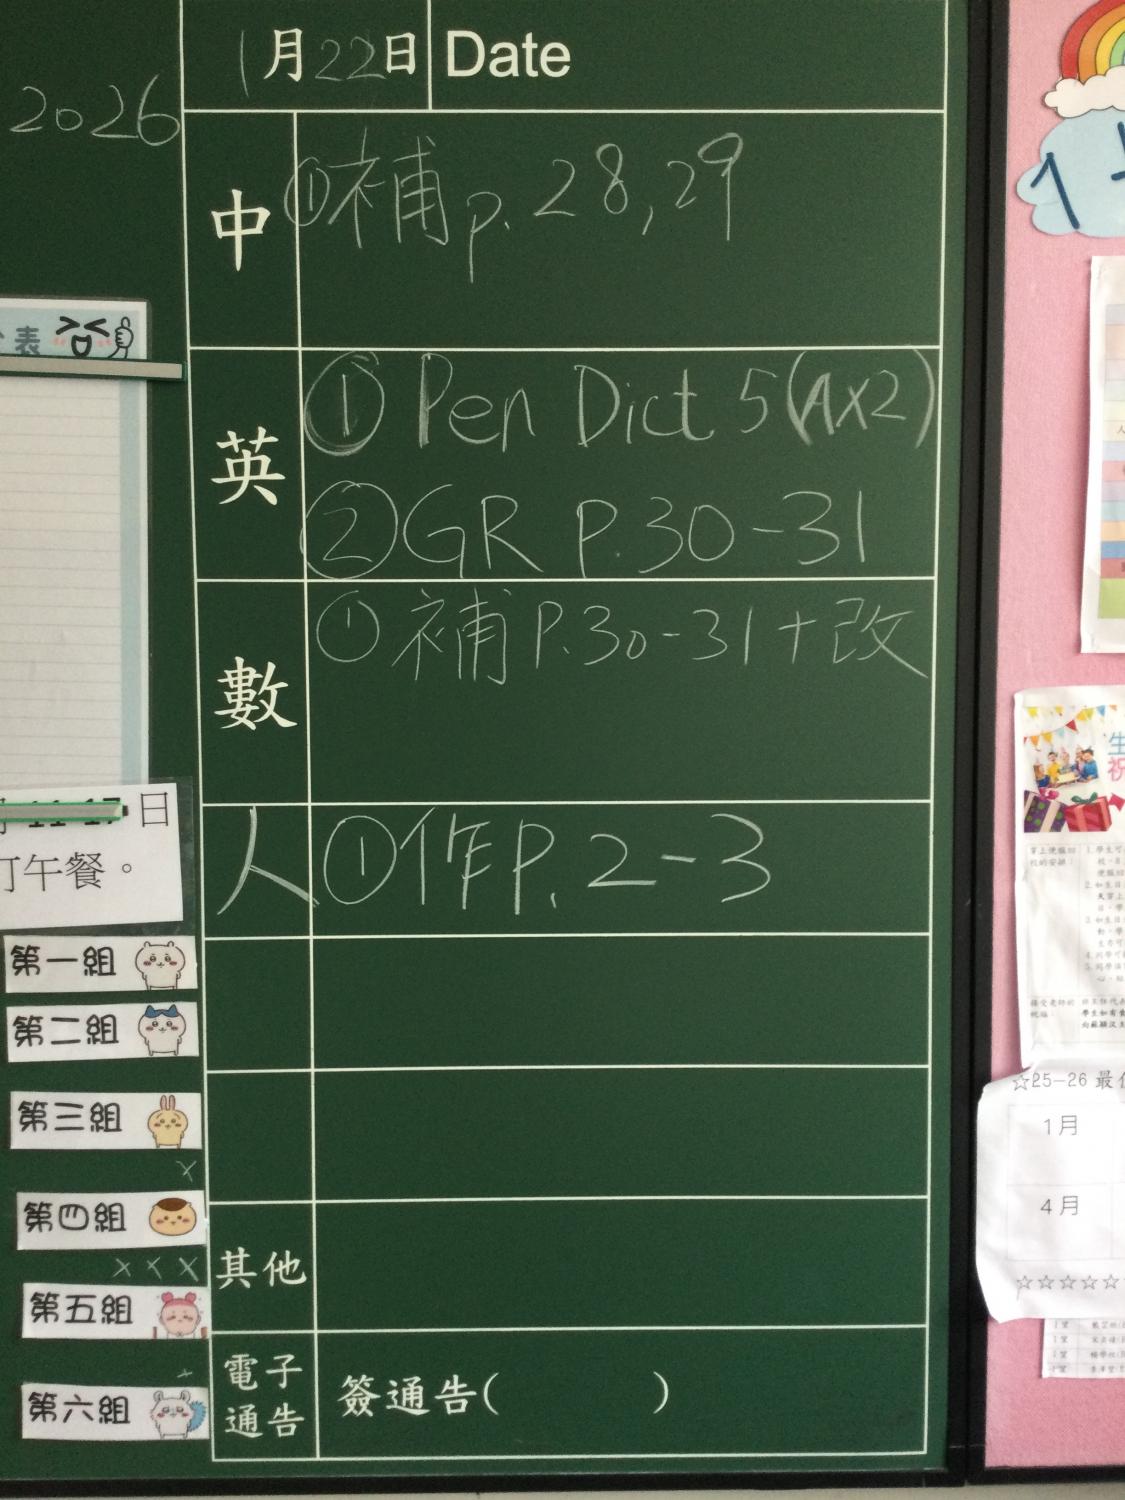 1月22日 Date
2026
中 ①補p.28,29
英 ①Pen Dict 5(AX2)
②GR P.30-31
數 ①補P.30-31+改
人 ①作P.2-3
其他
電子通告 簽通告( )
表
11-17日
訂午餐。
第一組
第二組
第三組
x
第四組
x x x
第五組
第六組
1
生
祝
☆25-26 最
1月
4月
☆☆☆☆☆